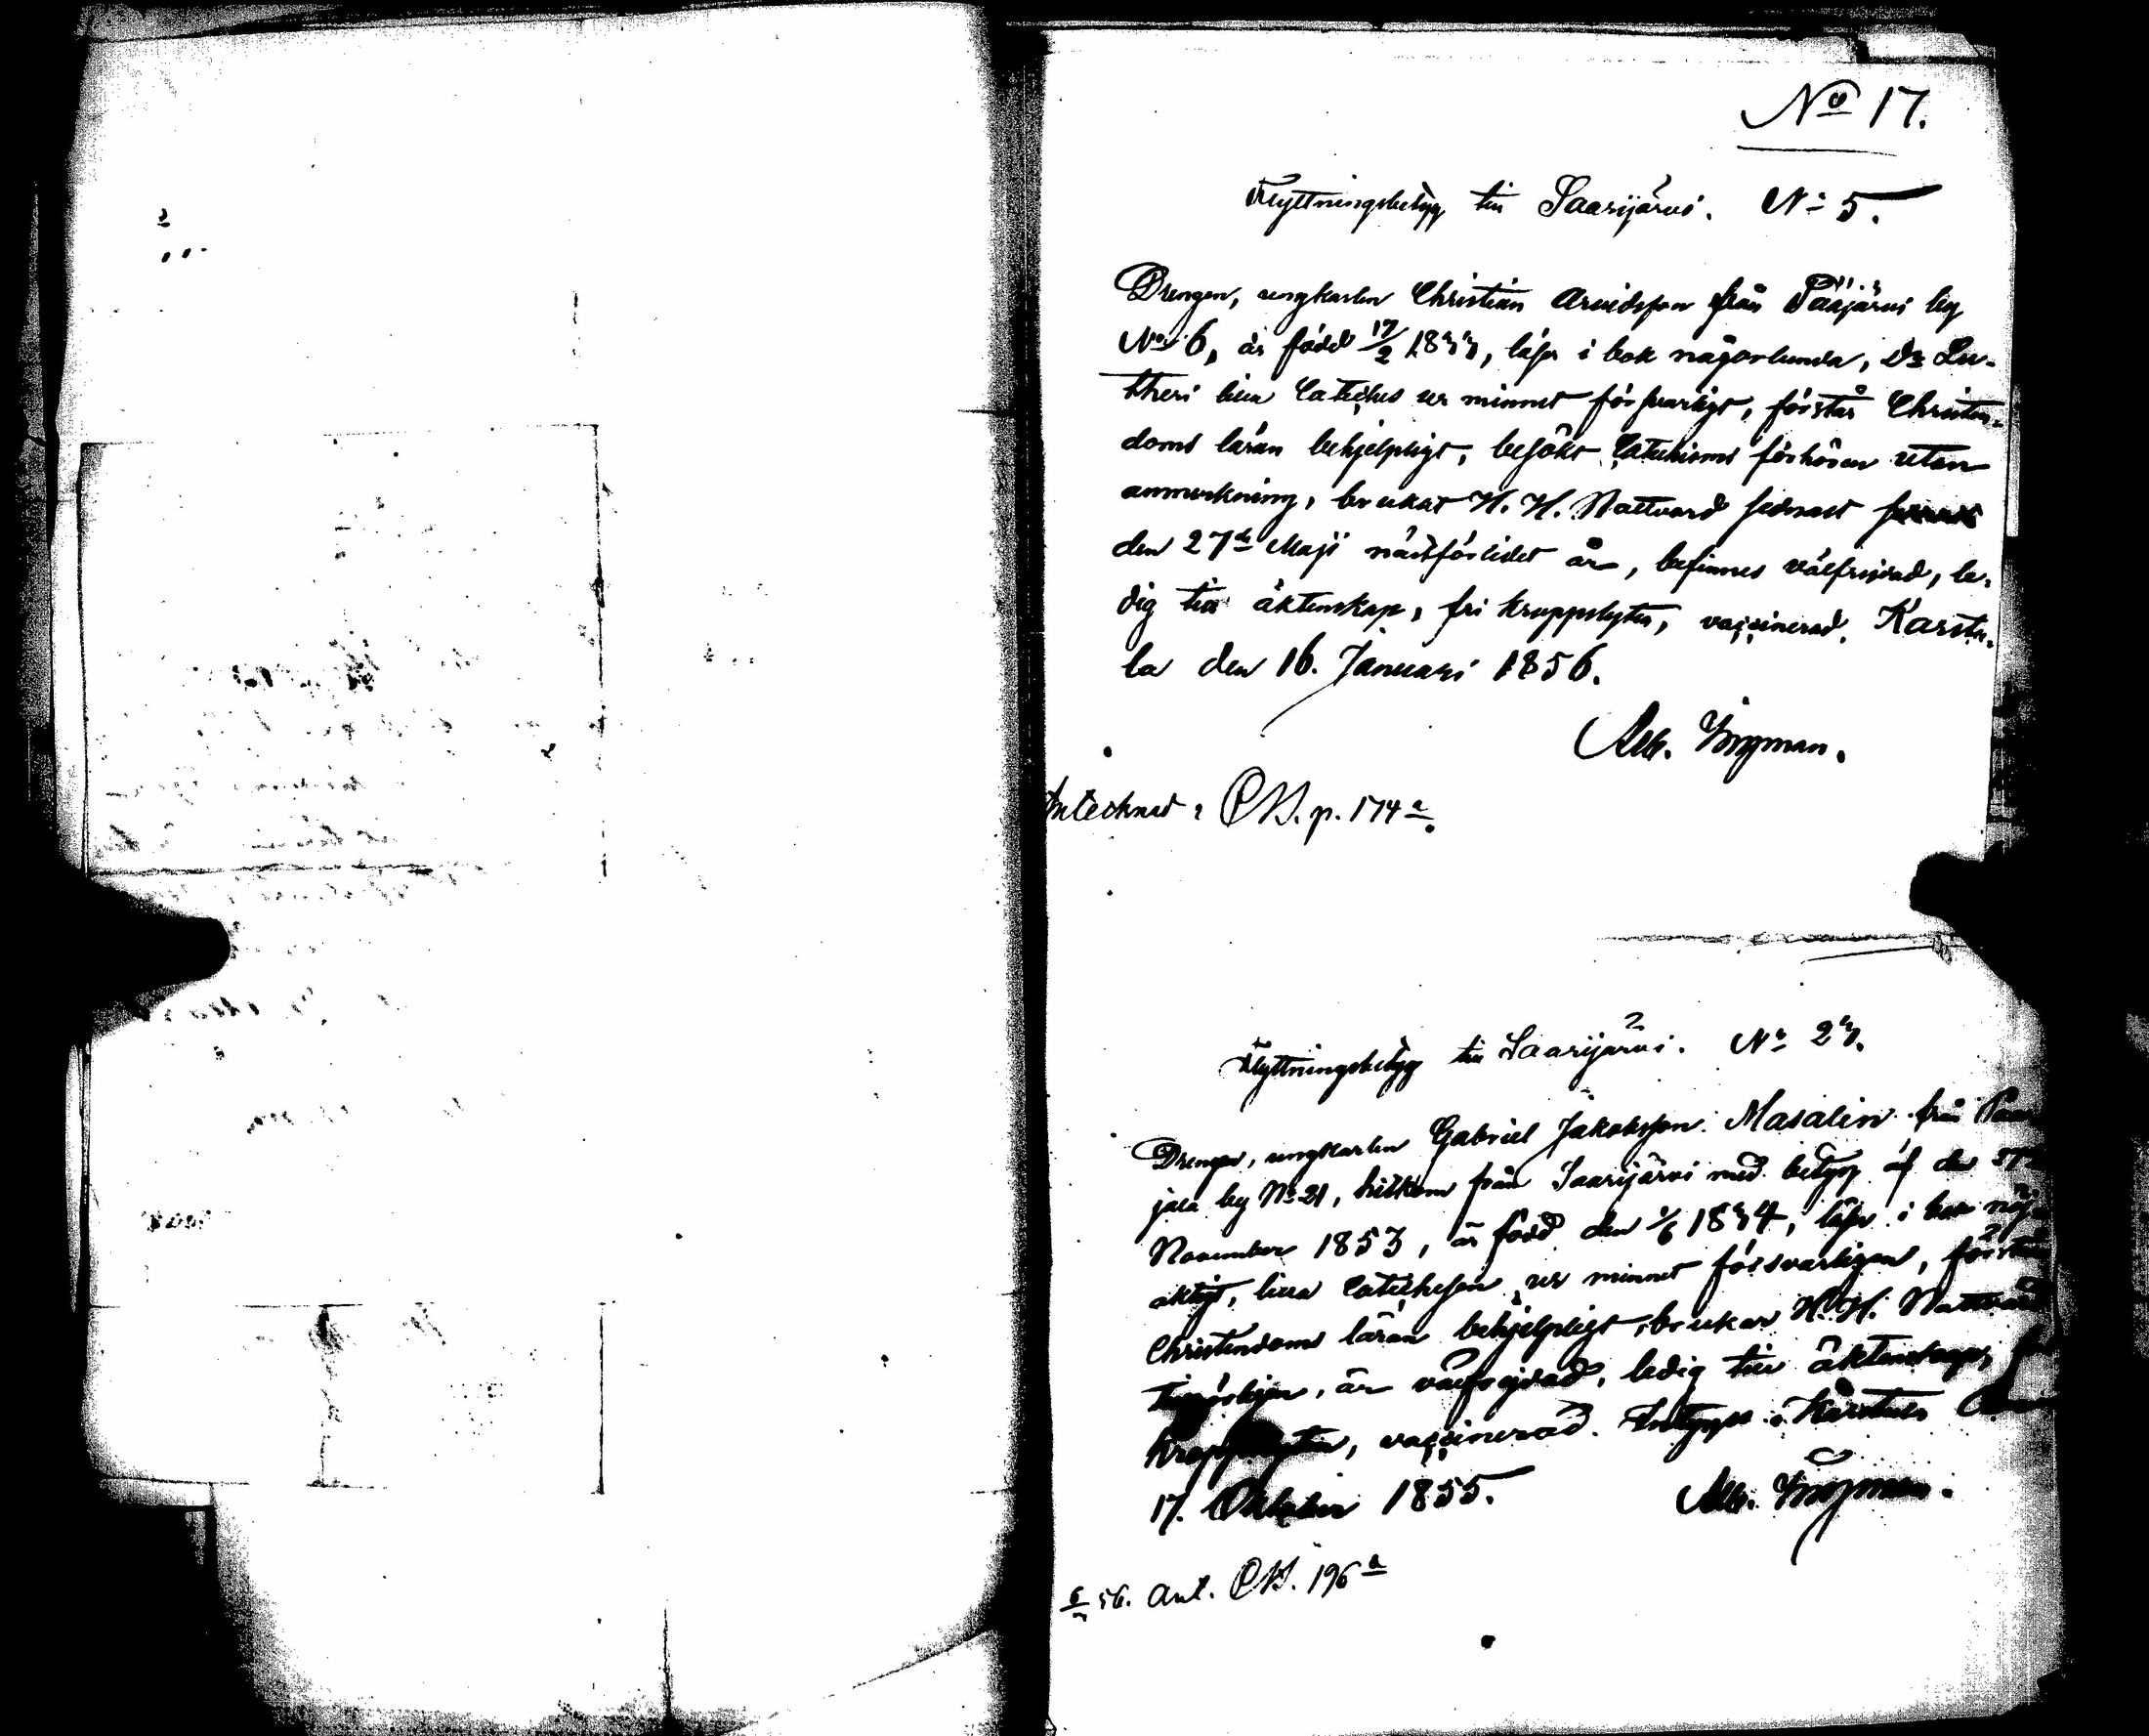 No 17.
Flyttningsbetyg till Saarijärvi. No 5.
Drengen, ungkarlen Christian Arvidsson från Pääjärvi by
No 6, är född 17/2 1833, läser i bok någorlunda, Dr Lu-
theri lilla Cateches ur minnet försvarligt, förstår Christen-
doms läran behjelpligt, besökt Catechismi förhören utan
anmerkning, brukat H. H. Nattvard sednast
den 27de Maji nästförlidet år, befinnes välfrejdad, le-
dig till äktenskap, fri kroppslyten, vaccinerad. Karstu-
la den 16. Januari 1856.
Alb. Ingman.
Antecknad i C.B. p. 174 a.
Flyttningsbetyg till Saarijärvi. No 23.
Drengen, ungkarlen Gabriel Jakobsson Masalin från
jala by No 21, hitkom från Saarijärvi med betyg af den
November 1853, är född den 1/6 1834, läser i bok
aktigt, lilla Catechesen ur minnet försvarligen, förstår
Christendoms läran behjelpligt, brukar H. H. Nattvard
är välfrejdad, ledig till äktenskap,
kroppslyten, vaccinerad. Intygas i Karstula
17. Oktober 1855. Alb. Ingman.
56. Ant. C.B. 196 a